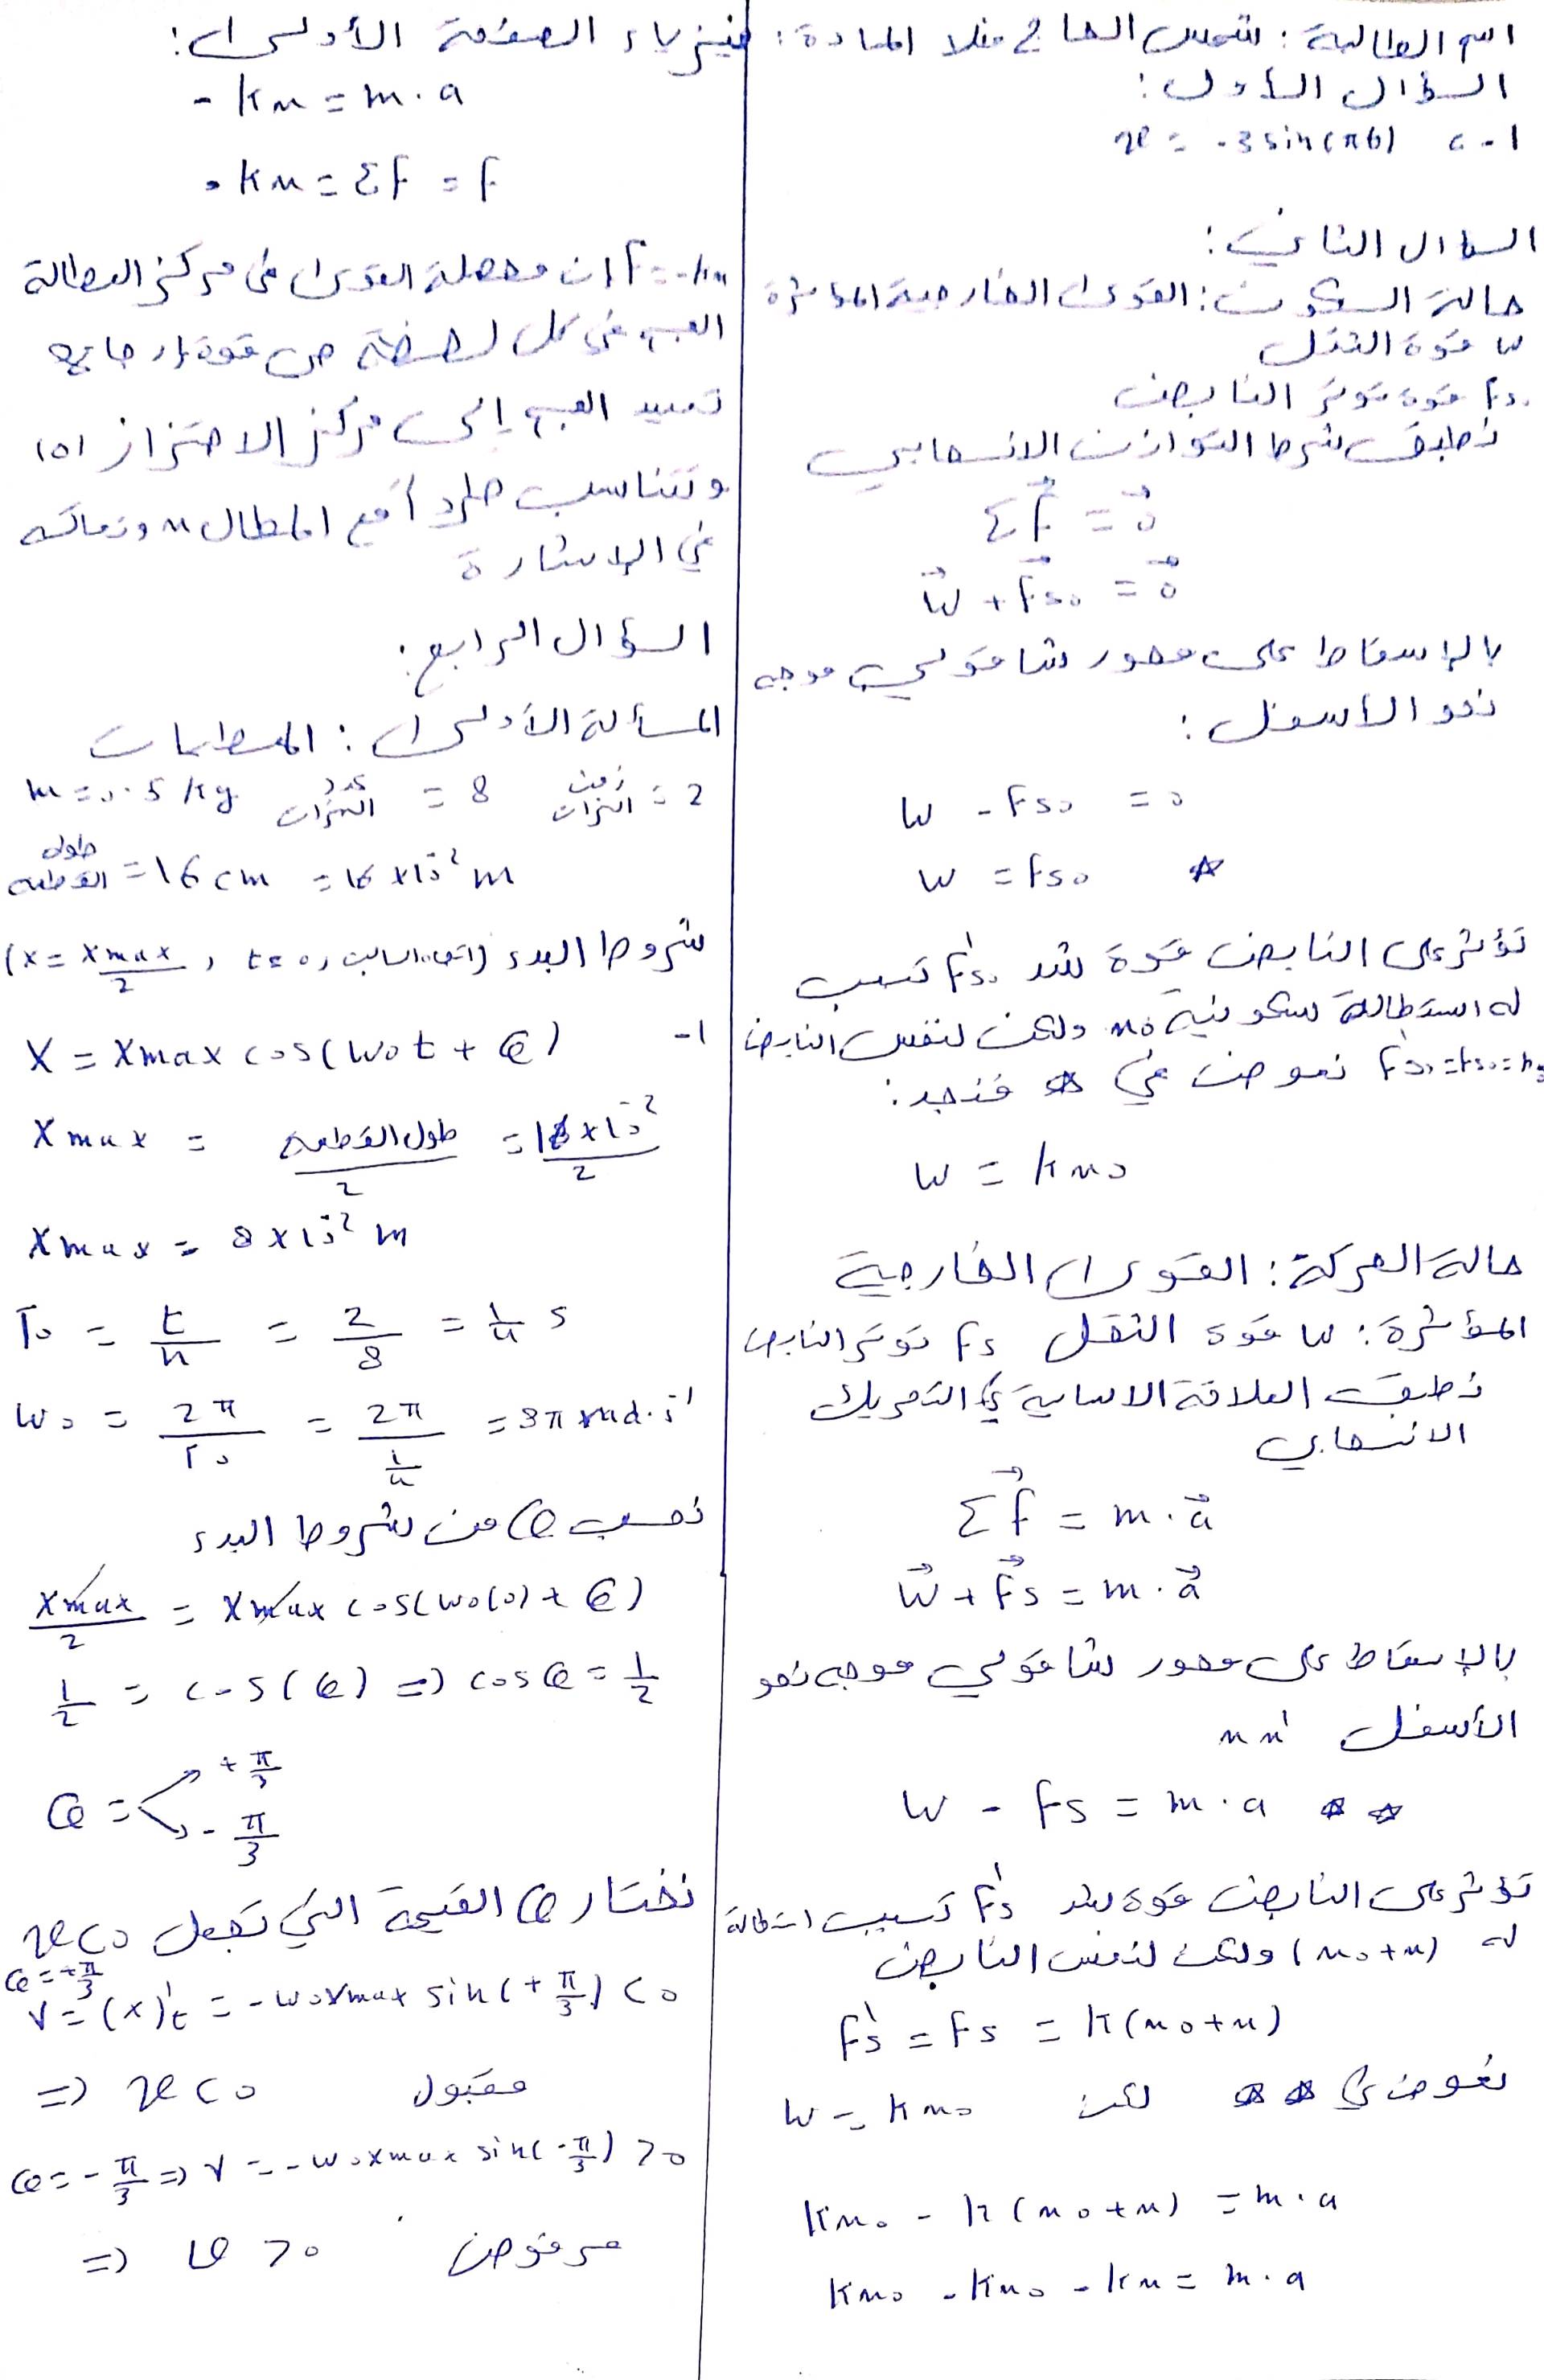 اسم الطالبة: شمس الحاج منلا المادة: فيزياء الصفحة الأولى:
السؤال الأول:
1- c v = -3 sin(πt)
السؤال الثاني:
حالة السكون: القوى الخارجية المؤثرة
W قوة الثقل
Fs₀ قوة توتر النابض
نطبق شرط التوازن الانسحابي
ΣF⃗ = 0⃗
W⃗ + F⃗s₀ = 0⃗
بالإسقاط على محور شاقولي موجه
نحو الأسفل:
W - Fs₀ = 0
W = Fs₀ ☆
تؤثر على النابض قوة شد F's₀ تسبب
له استطالة سكونية x₀ ولكن لنفس النابض
F's₀ = Fs₀ = kx₀ نعوض في ☆ فنجد:
W = kx₀
حالة الحركة: القوى الخارجية
المؤثرة: W قوة الثقل Fs توتر النابض
نطبق العلاقة الاساسية في التحريك
الانسحابي
ΣF⃗ = m.a⃗
W⃗ + F⃗s = m.a⃗
بالإسقاط على محور شاقولي موجه نحو
الأسفل xx'
W - Fs = m.a ☆☆
تؤثر على النابض قوة شد F's تسبب استطالة
له (x₀+x) ولكن لنفس النابض
F's = Fs = k(x₀+x)
نعوض في ☆☆ لكن W = kx₀
kx₀ - k(x₀+x) = m.a
kx₀ - kx₀ - kx = m.a
-kx = m.a
-kx = ΣF = F
F = -kx ان محصلة القوى في مركز العطالة
الجسم في كل لحظة هي قوة إرجاع
تعيد الجسم إلى مركز الاهتزاز (0)
وتتناسب طرداً مع المطال x وتعاكسه
في الإشارة
السؤال الرابع:
المسألة الأولى: المعطيات
2 = زمن الهزات 8 = عدد الهزات m = 0.5 kg
طول القطعة = 16 cm = 16×10⁻² m
شروط البدء (اتجاه السالب, t=0, x = Xmax/2)
1- X = Xmax cos(ω₀t + φ)
Xmax = طول القطعة/2 = 16×10⁻²/2
Xmax = 8×10⁻² m
T₀ = t/n = 2/8 = 1/4 s
ω₀ = 2π/T₀ = 2π/(1/4) = 8π rad.s⁻¹
نحسب φ من شروط البدء
Xmax/2 = Xmax cos(ω₀(0) + φ)
1/2 = cos(φ) ⇒ cosφ = 1/2
φ = < +π/3
-π/3
نختار φ القيمة التي تجعل v<0
φ = +π/3
v = (x)'t = -ω₀Xmax sin(+π/3) < 0
⇒ v < 0 مقبول
φ = -π/3 ⇒ v = -ω₀Xmax sin(-π/3) > 0
⇒ v > 0 مرفوض